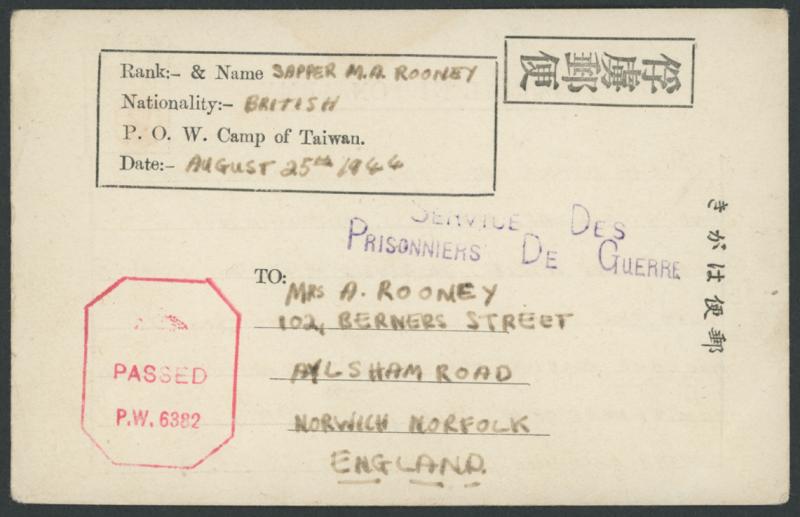 Rank:- & Name SAPPER M.A. ROONEY
Nationality:- BRITISH
P. O. W. Camp of Taiwan.
Date:- AUGUST 25TH 1944
俘虜郵便
SERVICE DES
PRISONNIERS DE GUERRE
郵便はがき
TO:
MRS A. ROONEY
102, BERNERS STREET
AYLSHAM ROAD
NORWICH NORFOLK
ENGLAND.
PASSED
P.W. 6382